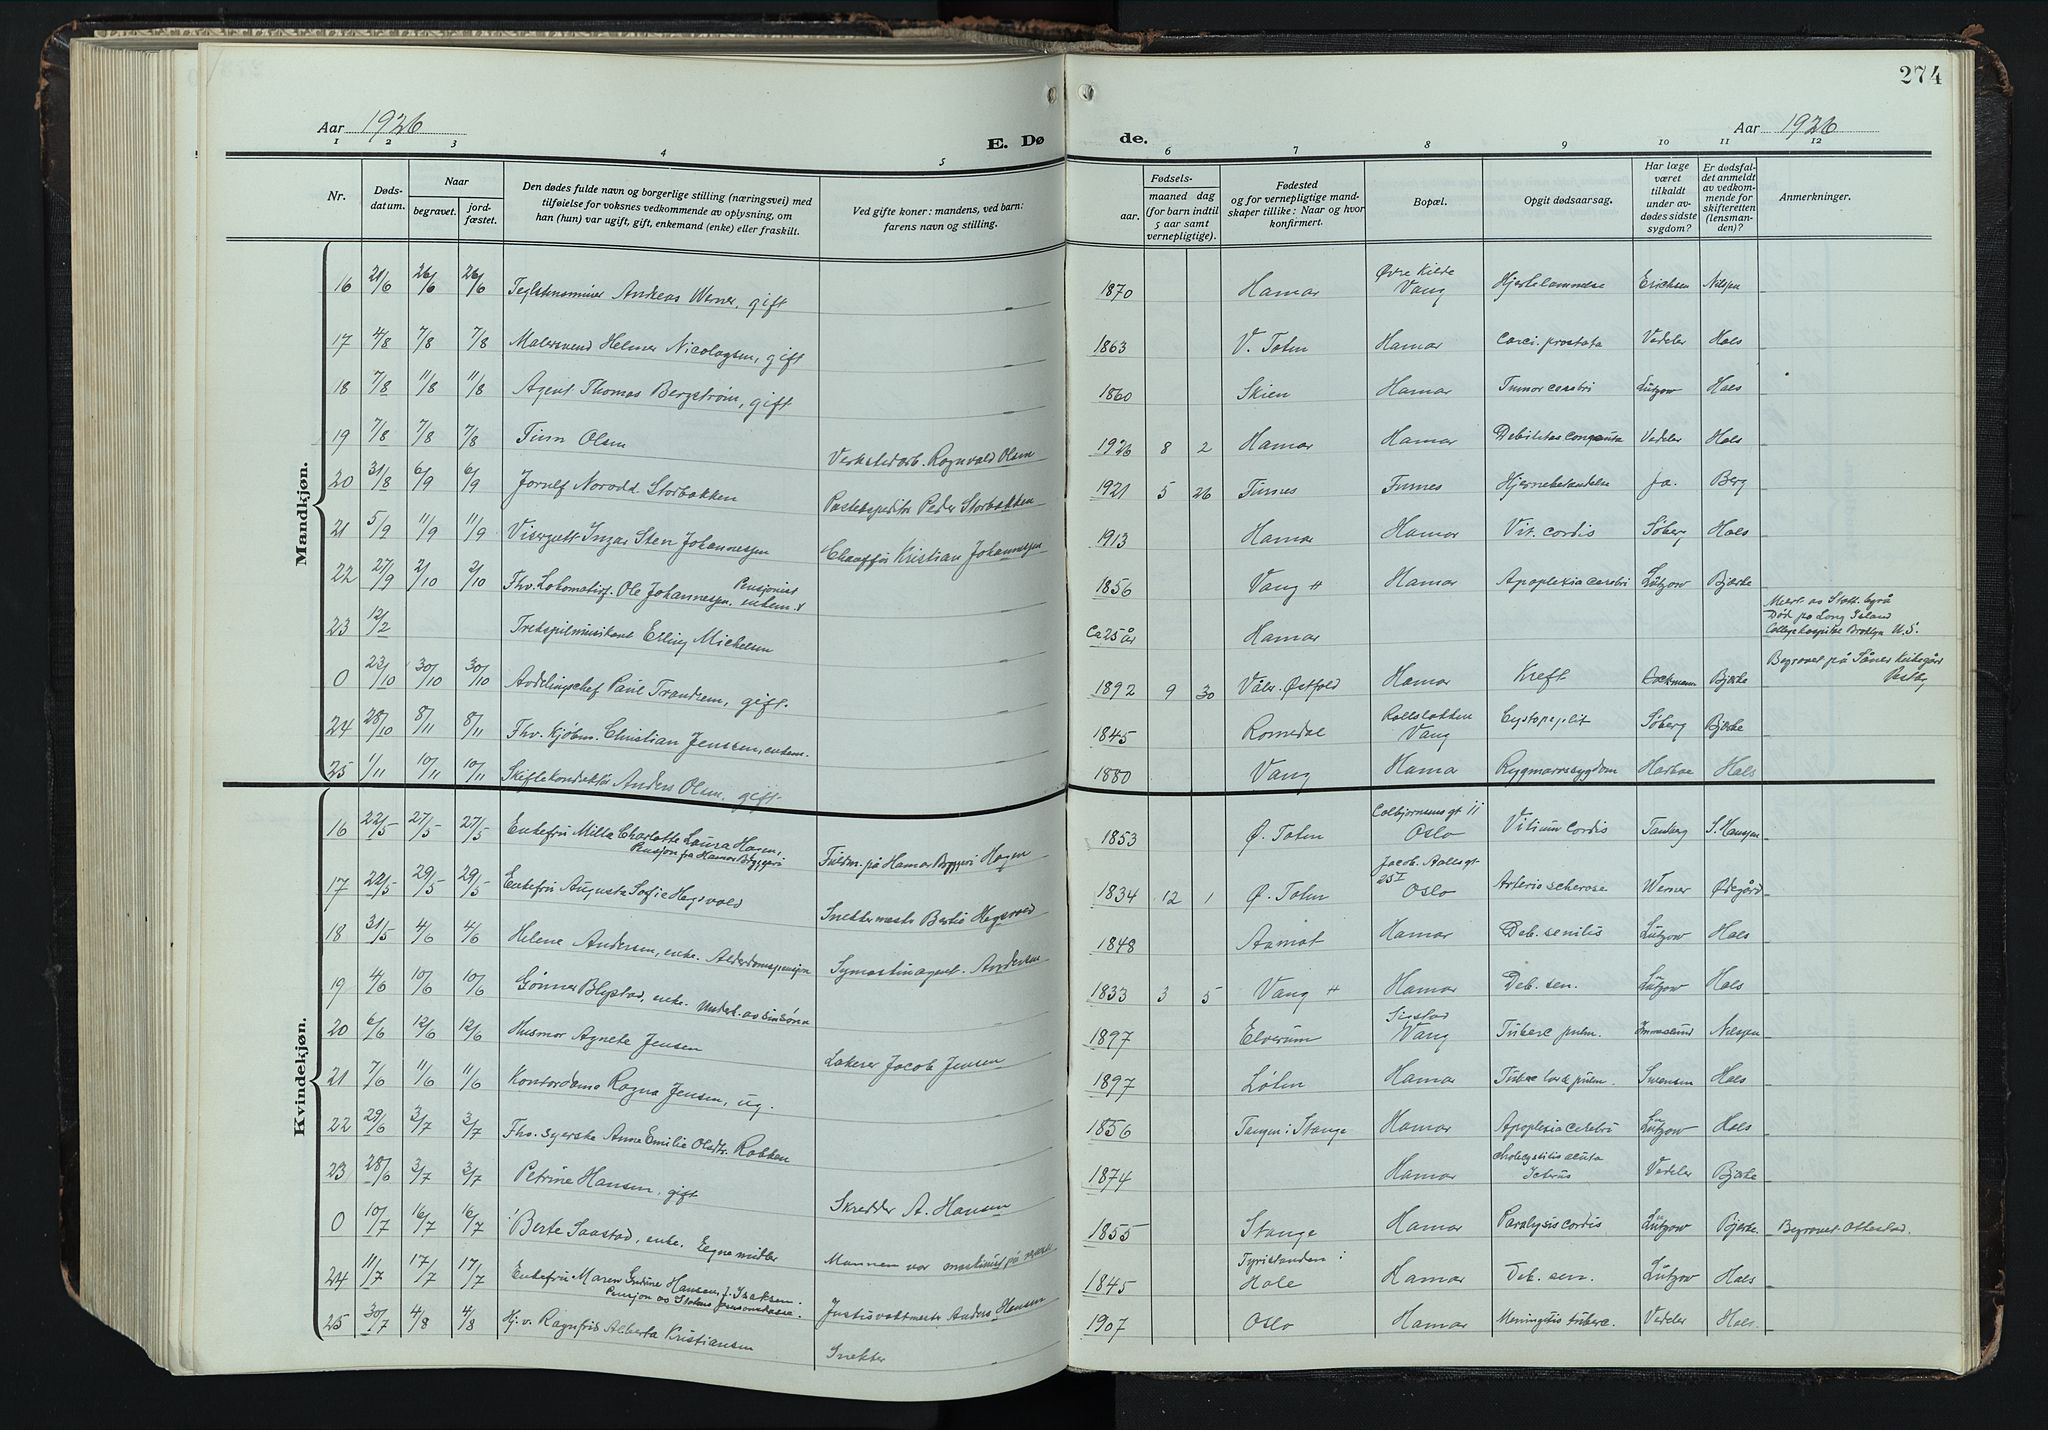 274
Aar 1926
E. Dø
de.
Aar 1926
1 2 3 4 5 6 7 8 9 10 11 12
Nr.
Døds-
datum.
Naar
begravet.
jord-
fæstet.
Den dødes fulde navn og borgerlige stilling (næringsvei) med
tilføielse for voksnes vedkommende av oplysning, om
han (hun) var ugift, gift, enkemand (enke) eller fraskilt.
Ved gifte koner: mandens, ved barn:
farens navn og stilling.
Fødsels-
aar.
maaned dag
(for barn indtil
5 aar samt
vernepligtige).
Fødested
og for vernepligtige mand-
skaper tillike: Naar og hvor
konfirmert.
Bopæl.
Opgit dødsaarsag.
Har læge
været
tilkaldt
under av-
dødes sidste
sygdom?
Er dødsfal-
det anmeldt
av vedkom-
mende for
skifteretten
(lensman-
den)?
Anmerkninger.
Mandkjøn.
16 21/6 26/6 26/6 Andreas Werner, gift — 1870 Hamar Øvre Kilde Vang Hjertelammelse Ericksen Nilsen
17 4/8 7/8 7/8 Malersvend Helmer Nicolaysen, gift — 1863 V. Toten Hamar Carci. prostata Vedeler Hals
18 7/8 11/8 11/8 Agent Thomas Bergstrøm, gift — 1860 Skien Hamar Tumor cerebri Lützow Hals
19 7/8 7/8 7/8 Finn Olsen Verkstedarb. Ragnvald Olsen 1926 8 2 Hamar Hamar Debilitas congenita Vedeler Hals
20 31/8 6/9 6/9 Storbakken Postekspeditør Peder Storbakken 1921 5 26 Furnes Furnes Hjernebetændelse Ja. Berg
21 5/9 11/9 11/9 Visergutt Ingar Sten Johannessen Chauffør Kristian Johannessen 1913 Hamar Hamar Vit. cordis Søberg Hals
22 27/9 2/10 2/10 Fhv. Lokomotivf. Ole Johannessen, Pensjonist enkem. 1856 Vang Hamar Apoplexia cerebri Lützow Bjerke
23 12/2 Erling Michelsen ca 25 år Hamar
Død på Long Island
College hospital Broklyn U.S.
0 23/10 30/10 30/10 Avdelingschef Paul Trandem, gift. 1892 9 30 Våler Østfold Hamar Kreft Bjerke Begravet på Såner Kirkegård
24 28/10 8/11 8/11 Fhv. kjøbm. Christian Jenssen, enkem. 1845 Romedal Vang Cystopyelit Søberg Bjerke
25 1/11 10/11 10/11 Skiftekonduktør Anders Olsen, gift 1880 Vang Hamar Rygmarvssygdom Harboe Hals
Kvindekjøn.
16 22/5 27/5 27/5 Enkefru Milla Charlotte Laura Hagen,
Pensjon fra Hamar Bryggeri
Fuldm. på Hamar Bryggeri Hagen 1853 Ø. Toten Colbjørnsens gt 11 Oslo Vitium cordis Tanberg S. Hanssen
17 22/5 29/5 29/5 Enkefru Augusta Sofie Hegsvold 1834 12 1 Ø. Toten Jacob Aalls gt 25 I Oslo Arterio sclerose Werner Ødegård
18 31/5 4/6 4/6 Helene Andersen, enke. Alderdomspensjon Symaskinagent Andersen 1848 Aamot Hamar Deb. senilis Lützow Hals
19 4/6 10/6 10/6 Gønner Blystad, enke. Underh. av sin sønn 1833 3 5 Vang Hamar Deb. sen. Lützow Hals
20 6/6 12/6 12/6 Husmor Agnete Jensen Lakerer Jacob Jensen 1897 Elverum Vang Tuberc pulm. Nilssen
21 7/6 11/6 11/6 Kontordame Ragna Jensen, ug. 1897 Løten Hamar Tuberc pulm. Svensen Hals
22 29/6 3/7 3/7 Fhv. syerske Anne Emilie Olsdtr. Robben 1856 Tangen i Stange Hamar Apoplexia cerebri Lützow Hals
23 28/6 3/7 3/7 Petrine Hansen, gift Skredder A. Hansen 1874 Hamar Cholecystitis acuta Icterus Vedeler Bjerke
0 10/7 16/7 16/7 Berte Saastad, enke. Egne midler Mannen var maskinist på 1855 Stange Hamar Paralysis cordis Lützow Bjerke Begravet Ottestad.
24 11/7 17/7 17/7 Enkefru Maren Gudine Hansen, f. Isaksen.
Pensjon av Statens pensjonskasse.
Justisvaktmester Anders Hansen 1845 Tyristranden i Hole Hamar Deb. sen. Lützow Hals
25 30/7 4/8 4/8 Hj. v. Ragnfrid Alberta Kristiansen Snekker 1907 Oslo Hamar Meningitis tuberc. Vedeler Hals